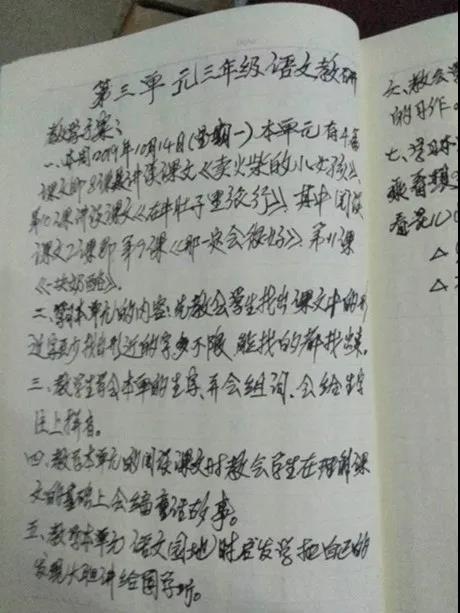 第三单元三年级语文教研
教学予案:
一、本周2019年10月14日(星期一)本单元有4篇
课文即8课讲读课文《卖火柴的小女孩》、
第10课讲读课文《在牛肚子里旅行》、其中阅读
课文2课即第9课《那一定会很好》、第11课
《一块奶酪》。
二、本单元的内容、先教会学生找出课文中的形
近字至少找出形近的字多不限,能找的都找出来。
三、教学生写会本单的生字、并会组词、会给生字
注上拼音。
四、教学本单元的阅读课文时教会学生在理解课
文的基础上会编童话故事。
五、教学本单元《语文园地》时启发学把自己的
发现大胆讲给同学听。
六、教会学
的习作。
七、
乘着
看是
△
△